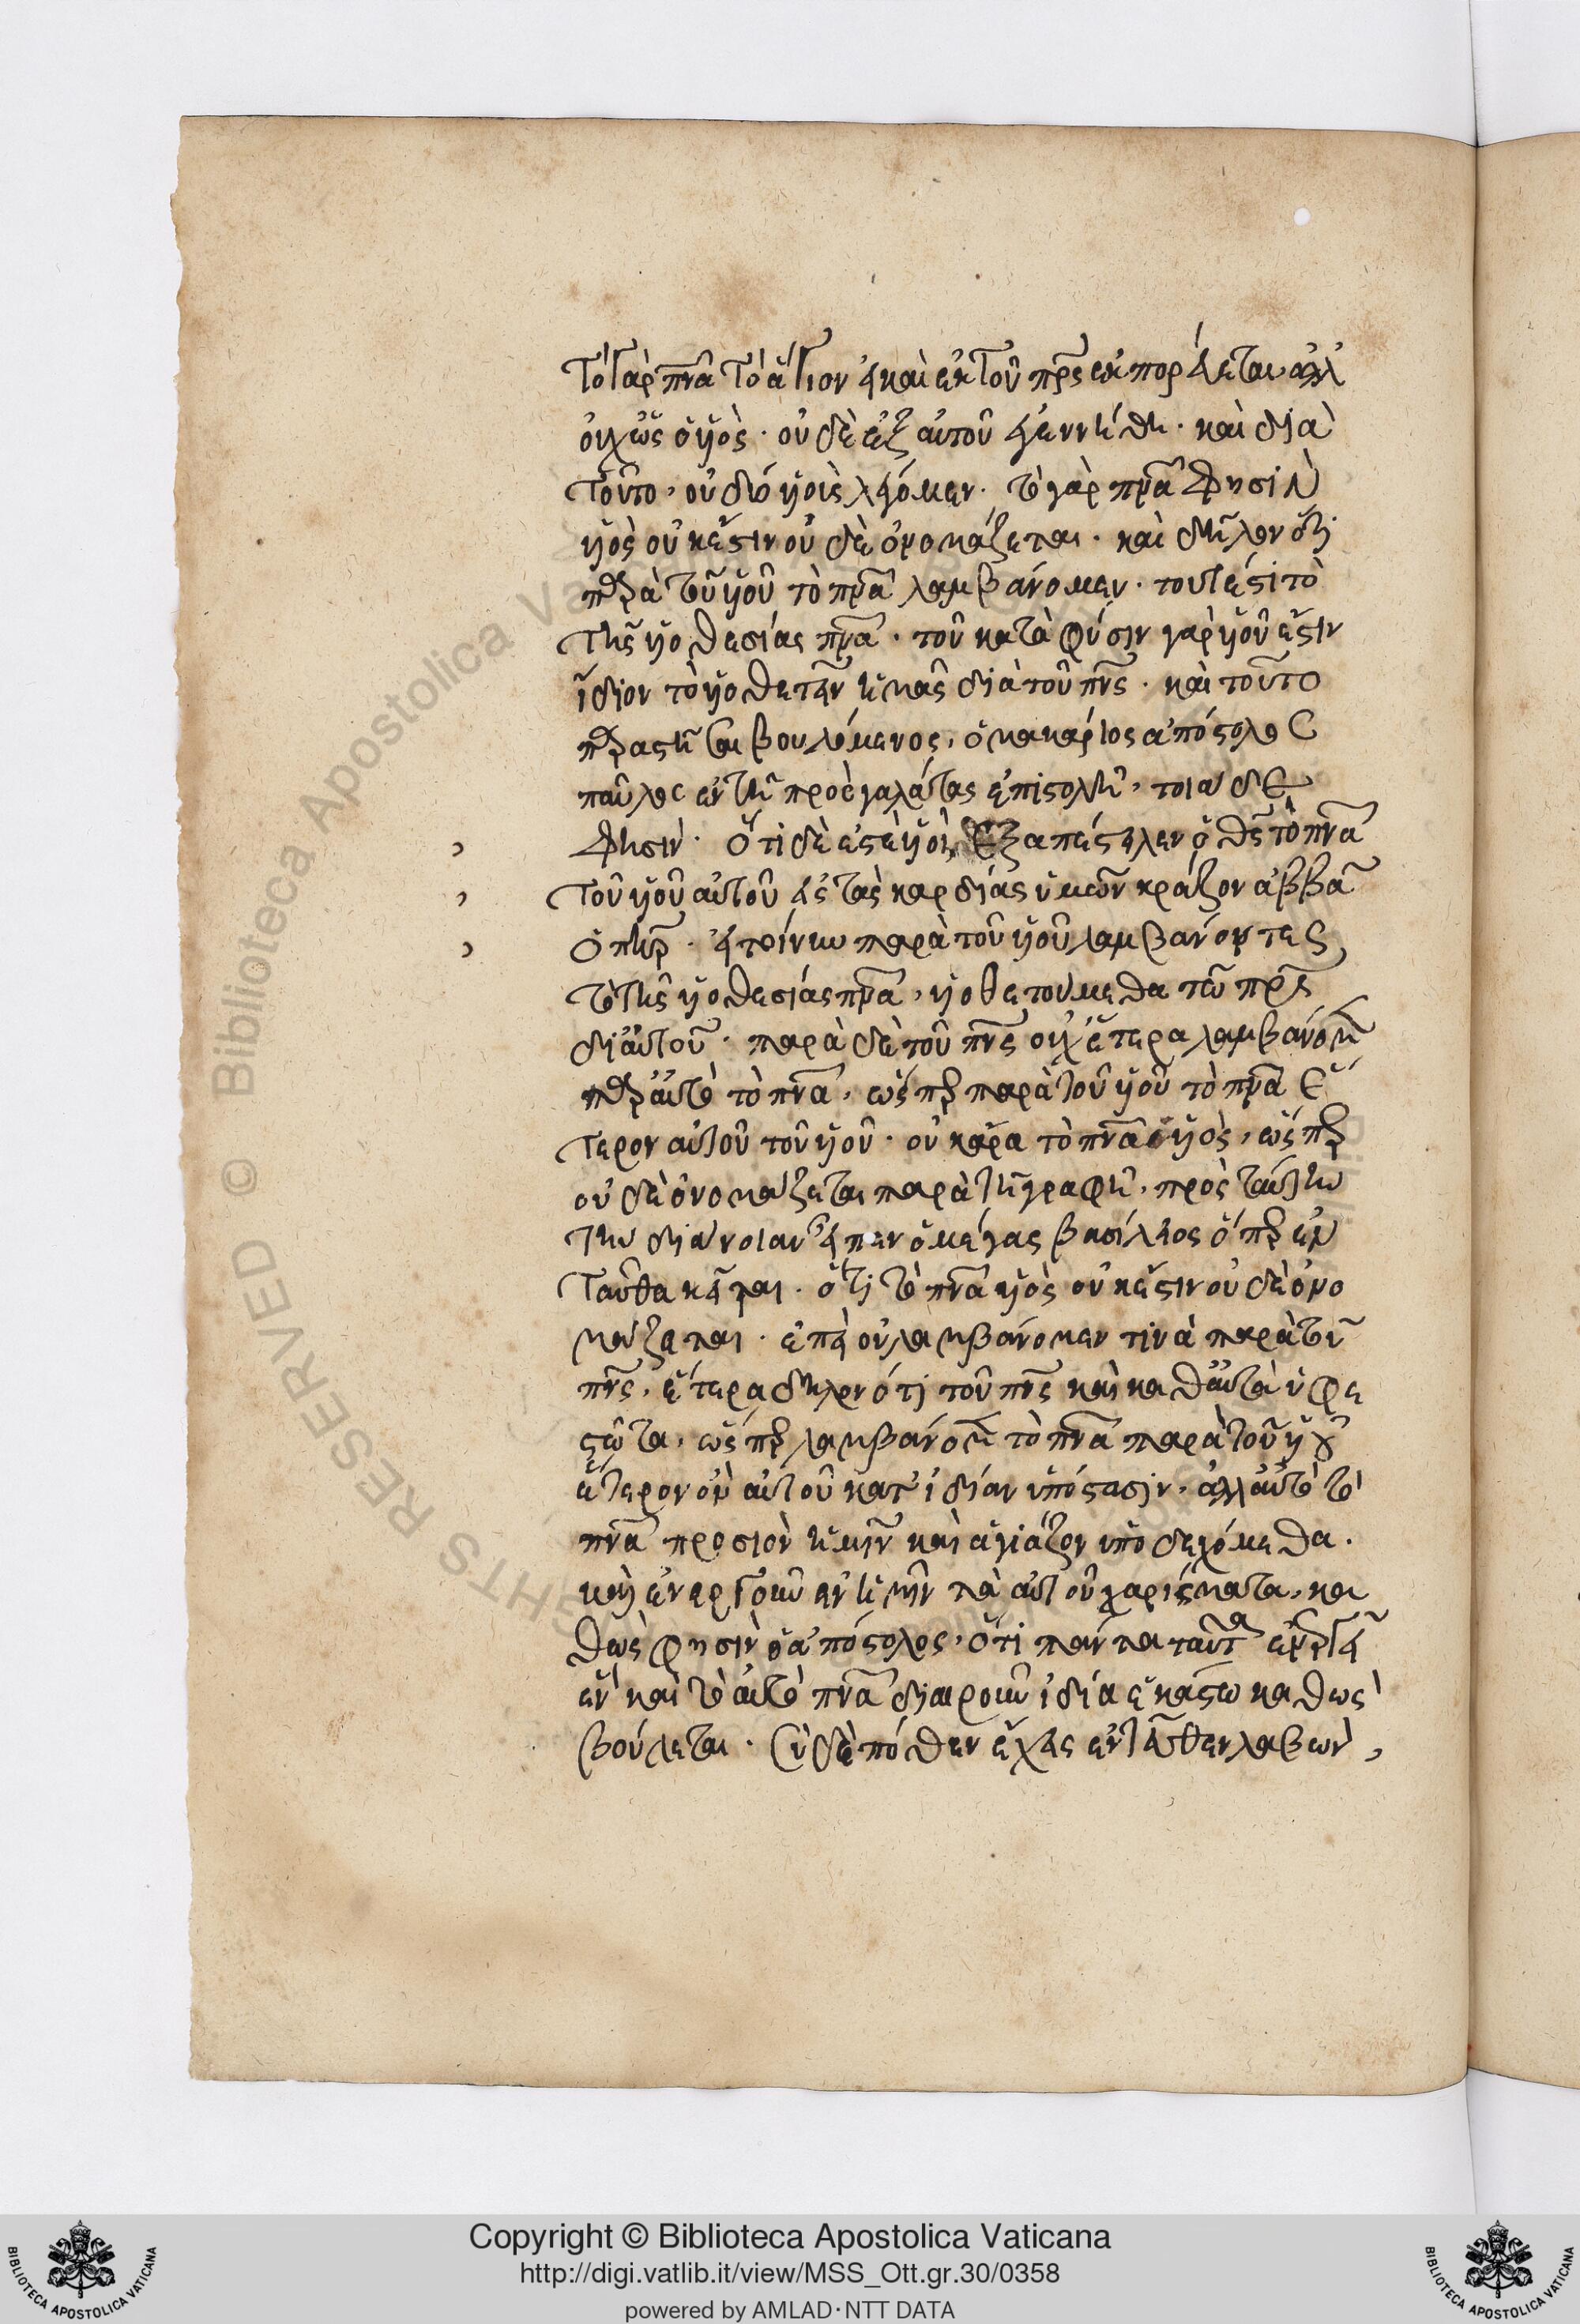 Τὸ γὰρ πνα τὸ ἅγιον εἰ καὶ ἐκ τοῦ πρς ἐκπορεύεται, ἀλλ
οὐχ ὡς ὁ υἱὸς · οὐδὲ ἐξ αὐτοῦ γεννήθη · καὶ διὰ
τοῦτο, οὐ δύο υἱοὺς λέγομεν · τὸ γὰρ πνα φησὶν
υἱὸς οὐκ ἔστιν οὐδὲ ὀνομάζεται · καὶ δῆλον ὅτι
παρὰ τοῦ υἱοῦ τὸ πνα λαμβάνομεν · τουτέστι τὸ
τῆς υἱοθεσίας πνα · τοῦ κατὰ φύσιν γὰρ υἱοῦ ἔστιν
ἴδιον τὸ υἱοθετεῖν ἡμᾶς διὰ τοῦ πνς · καὶ τοῦτο
παραστῆσαι βουλόμενος, ὁ μακάριος ἀπόστολος
παῦλος ἐν τῇ πρὸς γαλάτας ἐπιστολῇ, τοιάδε
φησιν · Ὅτι δέ ἐστε υἱοὶ, ἐξαπέστειλεν ὁ θς τὸ πνα
τοῦ υἱοῦ αὐτοῦ εἰς τὰς καρδίας ὑμῶν κράζον ἀββᾶ
ὁ πηρ · εἰ τοίνυν παρὰ τοῦ υἱοῦ λαμβάνοντες
τὸ τῆς υἱοθεσίας πνα, υἱοθετούμεθα τῷ πρς
δι αὐτοῦ · παρὰ δὲ τοῦ πνς οὐχ ἕτερα λαμβάνομεν
παρ αὐτὸ τὸ πνα, ὥσπερ παρὰ τοῦ υἱοῦ τὸ πνα ἕ
τερον αὐτοῦ τοῦ υἱοῦ · οὐκ ἄρα τὸ πνα υἱὸς, ὥσπερ
οὐδὲ ὀνομάζεται παρὰ τῇ γραφῇ, πρὸς ταύτην
τὴν διάνοιαν εἶπεν ὁ μέγας βασίλειος ὅπερ ἐν
ταῦθα κεῖται · ὅτι τὸ πνα υἱὸς οὐκ ἔστιν οὐδὲ ὀνο
μάζεται · ἐπεὶ οὐ λαμβάνομεν τινὰ παρὰ τοῦ
πνς, ἕτερα δηλονότι τοῦ πνς καὶ καθ αὑτὰ ὑφε
στῶτα, ὥσπερ λαμβάνομεν τὸ πνα παρὰ τοῦ υἱοῦ
ἕτερον ὂν αὐτοῦ κατ ἰδίαν ὑπόστασιν, ἀλλ αὐτὸ τὸ
πνα προσιὸν ἡμῖν καὶ ἁγιάζον ὑποδεχόμεθα ·
καὶ ἐνεργοῦν ἐν ἡμῖν τὰ αὐτοῦ χαρίσματα, κα
θὼς φησιν ὁ ἀπόστολος, ὅτι πάντα ταῦτα ἐνεργεῖ
ἓν καὶ τὸ αὐτὸ πνα διαιροῦν ἰδίᾳ ἑκάστῳ καθὼς
βούλεται · Σὺ δὲ πόθεν ἔχεις ἐντεῦθεν λαβὼν,
Copyright © Biblioteca Apostolica Vaticana
http://digi.vatlib.it/view/MSS_Ott.gr.30/0358
powered by AMLAD·NTT DATA